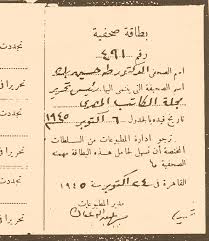 بطاقة صحفية
رقم ٤٩١
اسم الصحفي الدكتور طه حسين بك
اسم الصحيفة التي ينتمي اليها رئيس تحرير
مجلة الكاتب المصرى
تاريخ قيده بالجدول ٦ اكتوبر ١٩٤٥
ترجو ادارة المطبوعات من السلطات
المختصة أن تسهل لحامل هذه البطاقة مهمته
الصحفية
القاهرة في ٢٤ اكتوبر سنة ١٩٤٥
مدير المطبوعات
تجددت
تحريرا في
تجددت
تحريرا
تجددت